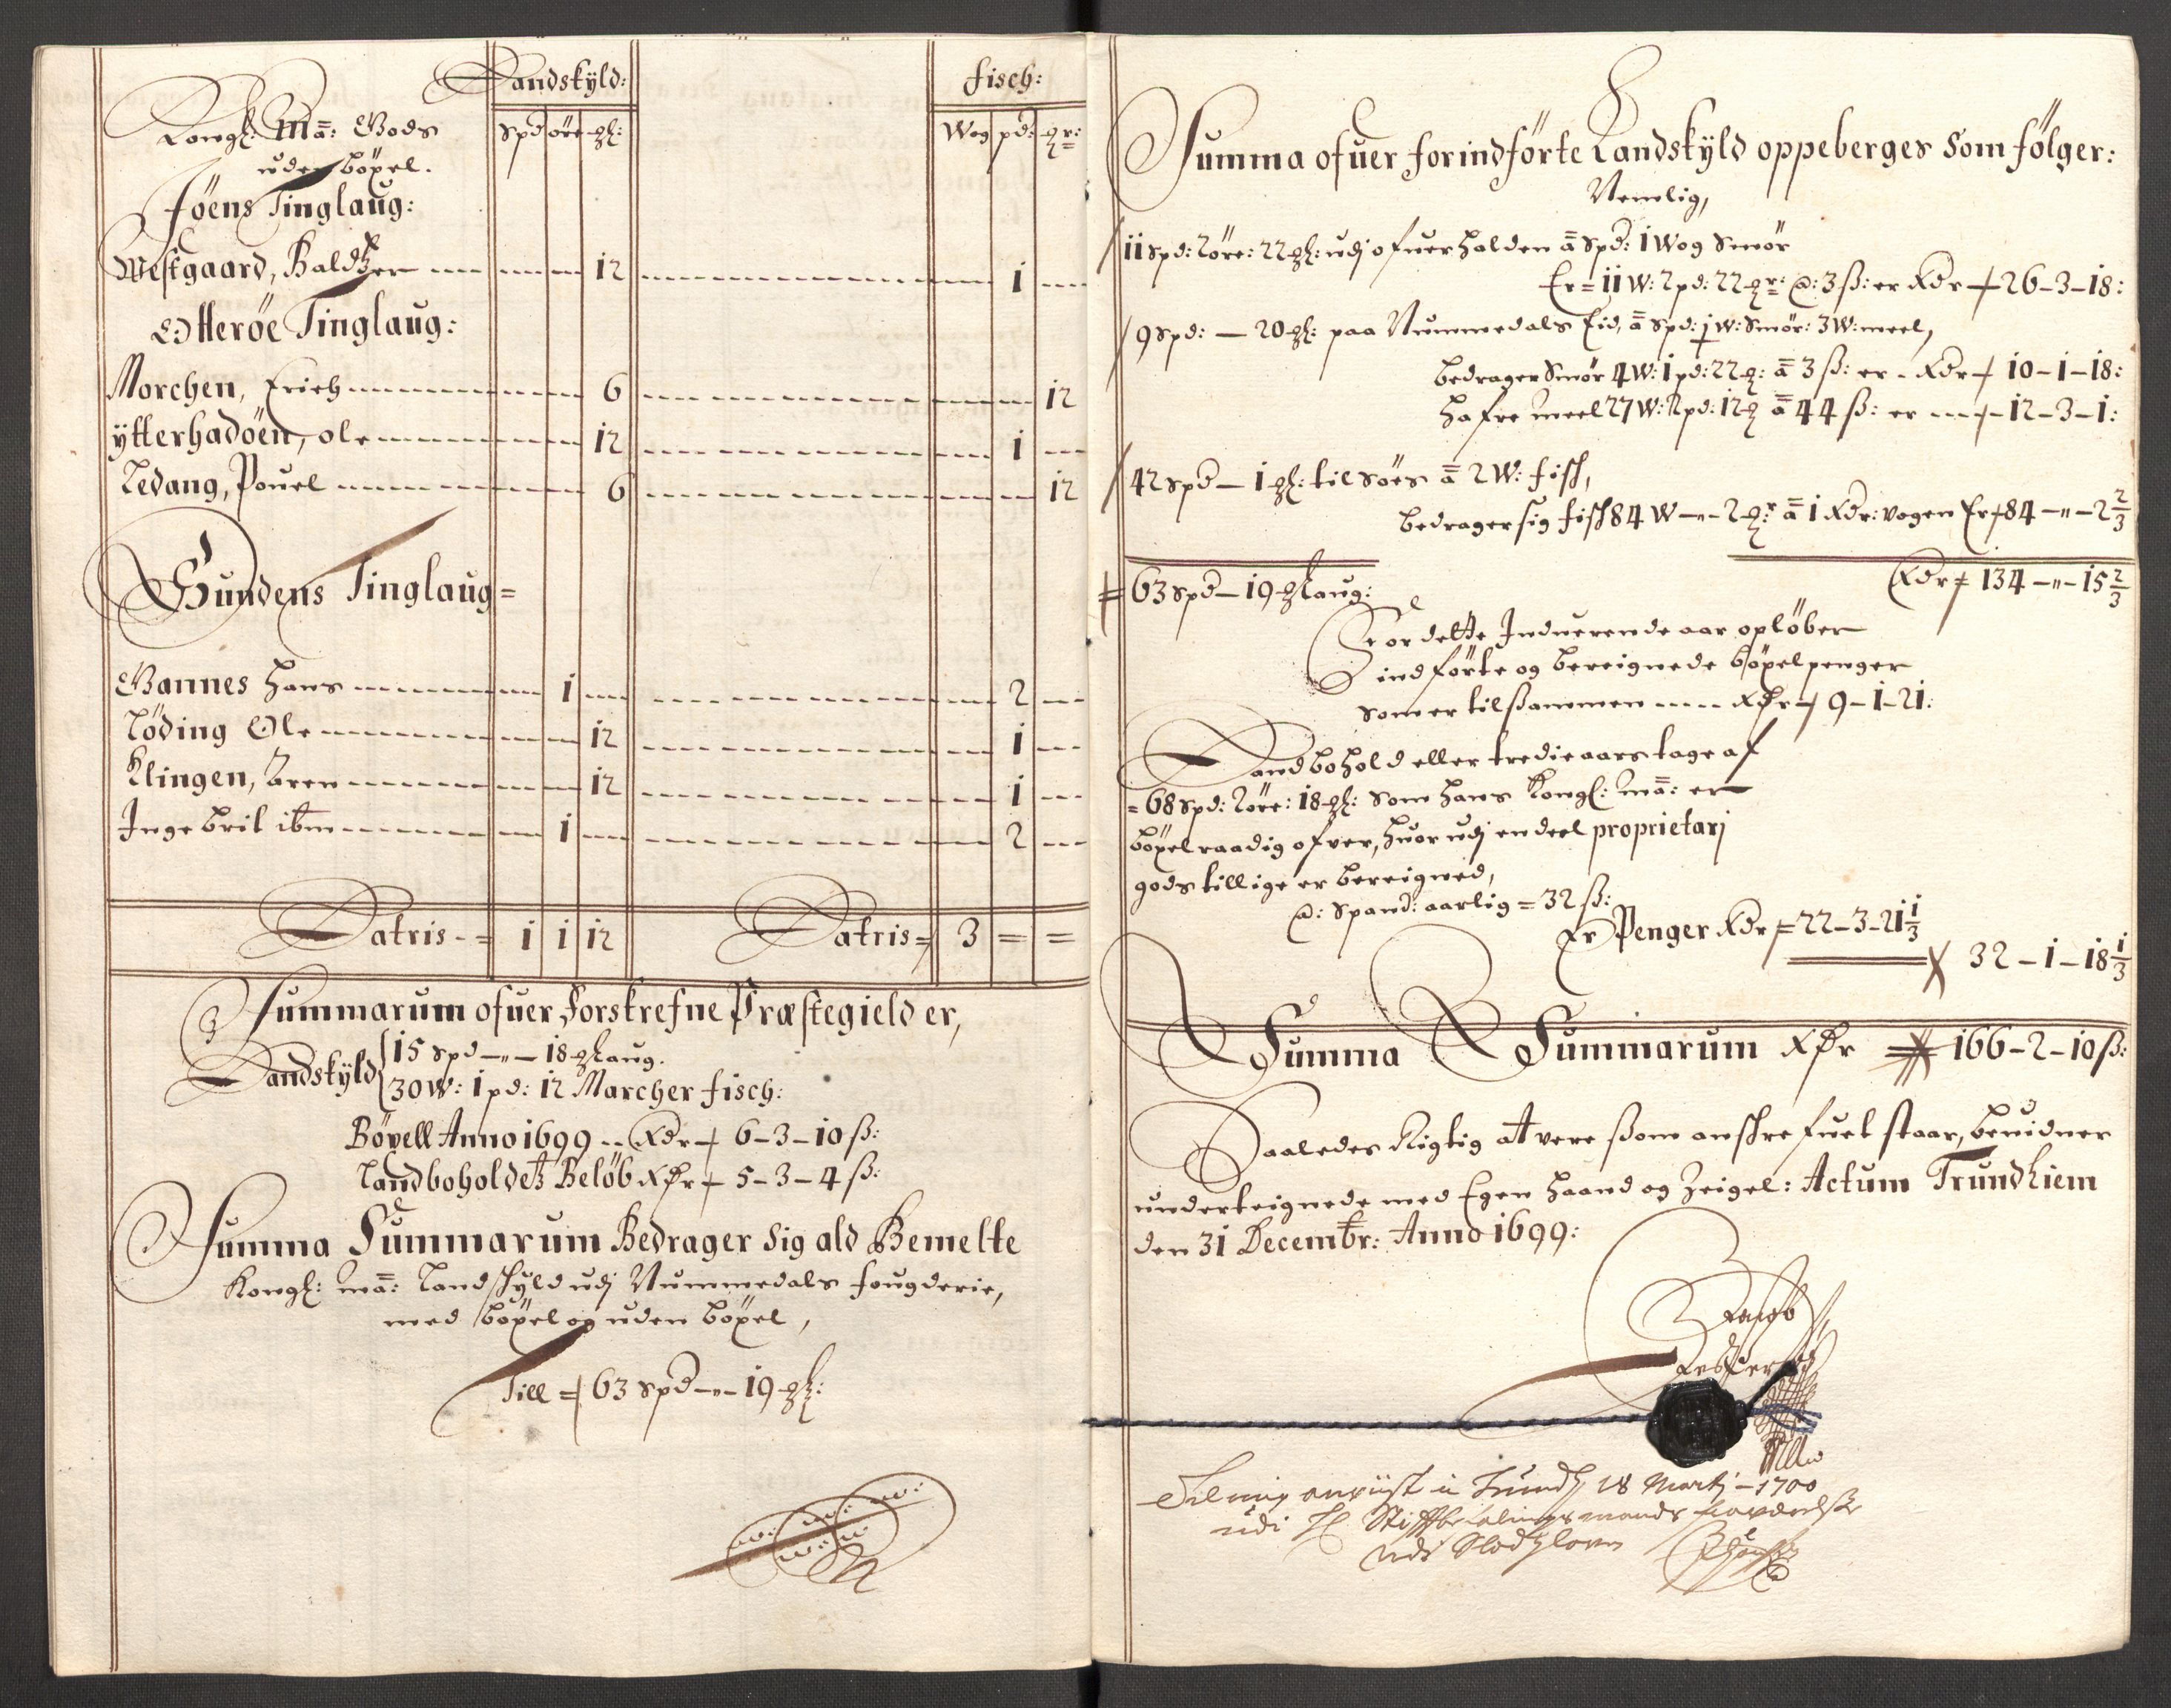 Landskÿld: fisch:
Kongl: Maÿ: Gods Spd öre ql: Wog pd: qr:
uden böxel.
föens Tinglaug:
Westgaard, Baldtzer 12 1
Otterøe Tinglaug:
Morchen, Erich 6 12
ÿtterhadöen, ole 12 1
Ledang, Pouel 6 12
Gundens Tinglaug =
Bannes Hans 1 2
Löding Ole 12 1
Klingen, Bren 12 1
Ingebril ibm 1 2
Latris - = 1 1 12 Latris = 3 = =
Summarum ofuer Forskrefne Præstegield er,
Landskÿld 15 Spd — „ — 18 ql aug.
30 W: 1 pd: 12 Marcher fisch:
Böxell Anno 1699 - - Rdr 6 - 3 - 10 ß:
Landboholdetz Beløb Rdr 5 - 3 - 4 ß:
Summa Summarum Bedrager Sig ald Bemelte
Kongl: Maÿ: Landskÿld udj Nummedals fougderie,
med böxel og uden böxel,
Till = 63 Spd - „ - 19 ql:
Summa ofuer forindförte Landskÿld oppeberges Som fölger:
Nemlig,
11 Spd: 2 öre: 22 ql: udj ofuerhalden á Spd: 1 Wog Smör
Er = 11 W: 2 pd: 22 qr: @: 3 ß: er Rdr 26 - 3 - 18:
9 Spd: — 20 ql: paa Nummedals Eid, á Spd: ½ W: Smör: 3 W: meel,
bedrager Smör 4 W: 1 pd: 22 q: á 3 ß: er - Rdr 10 - 1 - 18:
Hafre meel 27 W: 2 pd: 12 q á 44 ß: er 12 - 3 - 1:
42 Spd — 1 ql: til Söes á 2 W: fisk,
bedrager sig fisk 84 W - „ - 2 qr á 1 Rdr: vogen Er 84 - „ - 2 2/3
63 Spd — 19 ql aug: Rdr 134 - „ - 15 2/3
For dette Indverende aar oplöber
indförte og bereignede böxelpenger
som er tilsammen Rdr 9 - 1 - 21:
Landbohold eller tredie aars tage af
= 68 Spd: 2 öre: 18 ql: Som Hans Kongl: Maÿ: er
böxelraadig ofver, Huor udj en deel proprietarj
gods tillige er bereigned,
@: Spand: aarlig = 32 ß:
Er Penger Rdr = 22 - 3 - 21 1/3
32 - 1 - 18 1/3
Summa Summarum Rdr 166 - 2 - 10 ß:
Saaledes Rigtig at vere ßom anskrefuet staar, bevidner
underteignede med Egen Haand og Zeigel: Actum Trundhiem
den 31 Decembr: Anno 1699:
Til mig anviist i Trundh 18 Martj - 1700
udi H Stiftbefalingsmands nærværelse